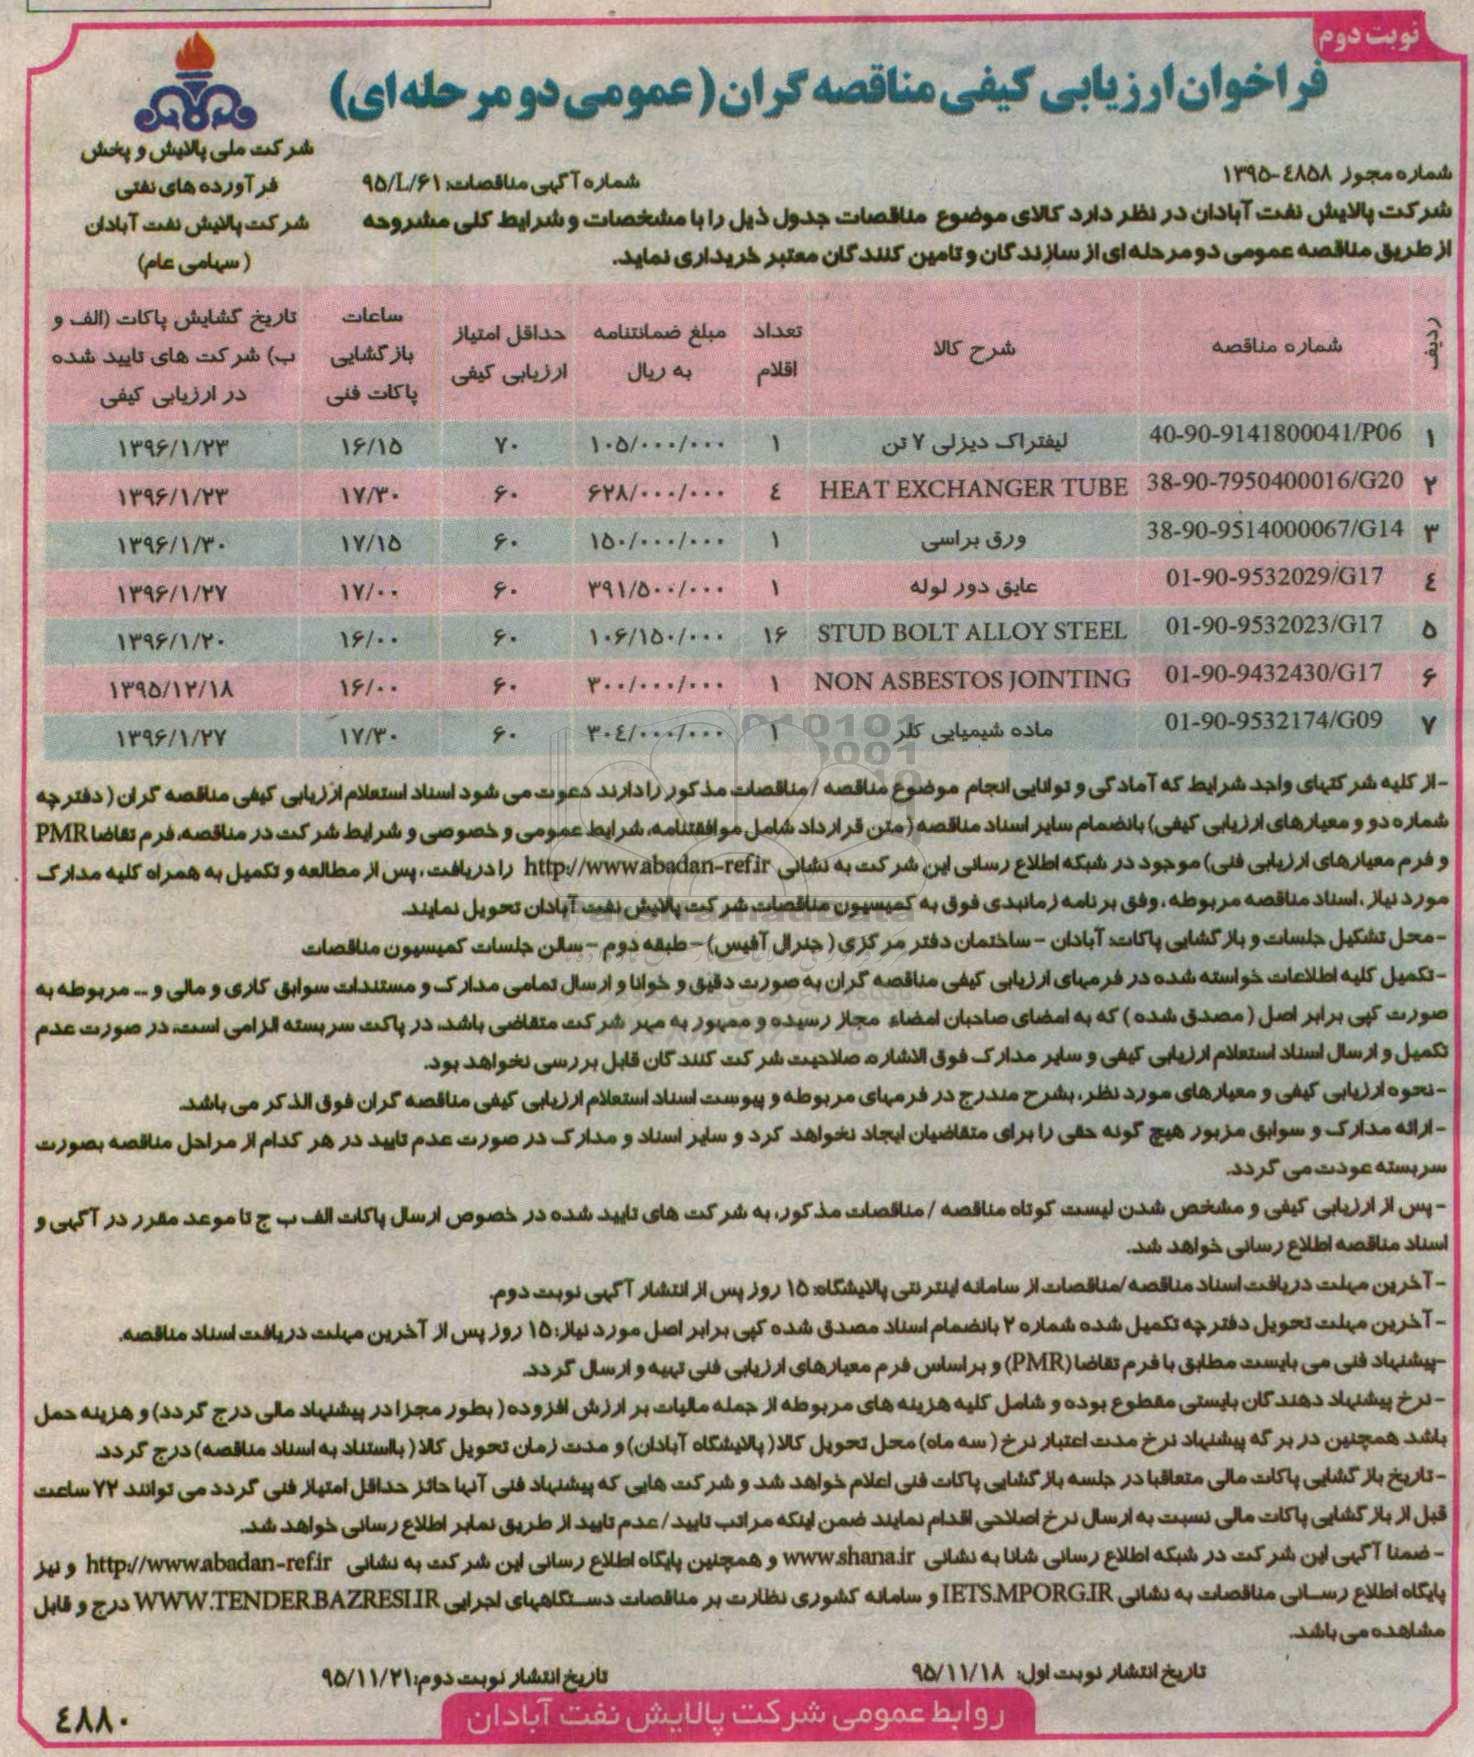 نوبت دوم
فراخوان ارزیابی کیفی مناقصه گران (عمومی دو مرحله ای)
شرکت ملی پالایش و پخش
فرآورده های نفتی
شرکت پالایش نفت آبادان
(سهامی عام)
شماره مجوز ۱۳۹۵-٤۸۵۸
شماره آگهی مناقصات: ۹۵/L/۶۱
شرکت پالایش نفت آبادان در نظر دارد کالای موضوع مناقصات جدول ذیل را با مشخصات و شرایط کلی مشروحه
از طریق مناقصه عمومی دو مرحله ای از سازندگان و تامین کنندگان معتبر خریداری نماید.
ردیف شماره مناقصه شرح کالا تعداد اقلام مبلغ ضمانتنامه به ریال حداقل امتیاز ارزیابی کیفی ساعات بازگشایی پاکات فنی تاریخ گشایش پاکات (الف و ب) شرکت های تایید شده در ارزیابی کیفی
۱ 40-90-9141800041/P06 لیفتراک دیزلی ۷ تن ۱ ۱۰۵/۰۰۰/۰۰۰ ۷۰ ۱۶/۱۵ ۱۳۹۶/۱/۲۳
۲ 38-90-7950400016/G20 HEAT EXCHANGER TUBE ٤ ۶۲۸/۰۰۰/۰۰۰ ۶۰ ۱۷/۳۰ ۱۳۹۶/۱/۲۳
۳ 38-90-9514000067/G14 ورق براسی ۱ ۱۵۰/۰۰۰/۰۰۰ ۶۰ ۱۷/۱۵ ۱۳۹۶/۱/۳۰
٤ 01-90-9532029/G17 عایق دور لوله ۱ ۳۹۱/۵۰۰/۰۰۰ ۶۰ ۱۷/۰۰ ۱۳۹۶/۱/۲۷
۵ 01-90-9532023/G17 STUD BOLT ALLOY STEEL ۱۶ ۱۰۶/۱۵۰/۰۰۰ ۶۰ ۱۶/۰۰ ۱۳۹۶/۱/۲۰
۶ 01-90-9432430/G17 NON ASBESTOS JOINTING ۱ ۳۰۰/۰۰۰/۰۰۰ ۶۰ ۱۶/۰۰ ۱۳۹۵/۱۲/۱۸
۷ 01-90-9532174/G09 ماده شیمیایی کلر ۱ ۳۰٤/۰۰۰/۰۰۰ ۶۰ ۱۷/۳۰ ۱۳۹۶/۱/۲۷
-از کلیه شرکتهای واجد شرایط که آمادگی و توانایی انجام موضوع مناقصه /مناقصات مذکور را دارند دعوت می شود اسناد استعلام ارزیابی کیفی مناقصه گران (دفترچه
شماره دو و معیارهای ارزیابی کیفی) بانضمام سایر اسناد مناقصه (متن قرارداد شامل موافقتنامه، شرایط عمومی و خصوصی و شرایط شرکت در مناقصه، فرم تقاضا PMR
و فرم معیارهای ارزیابی فنی) موجود در شبکه اطلاع رسانی این شرکت به نشانی http://www.abadan-ref.ir را دریافت ، پس از مطالعه و تکمیل به همراه کلیه مدارک
مورد نیاز ، اسناد مناقصه مربوطه ، وفق برنامه زمانبدی فوق به کمیسیون مناقصات شرکت پالایش نفت آبادان تحویل نمایند.
-محل تشکیل جلسات و بازگشایی پاکات: آبادان - ساختمان دفتر مرکزی (جنرال آفیس) - طبقه دوم - سالن جلسات کمیسیون مناقصات
-تکمیل کلیه اطلاعات خواسته شده در فرمهای ارزیابی کیفی مناقصه گران به صورت دقیق و خوانا و ارسال تمامی مدارک و مستندات سوابق کاری و مالی و ... مربوطه به
صورت کپی برابر اصل (مصدق شده) که به امضای صاحبان امضاء مجاز رسیده و ممهور به مهر شرکت متقاضی باشد، در پاکت سربسته الزامی است، در صورت عدم
تکمیل و ارسال اسناد استعلام ارزیابی کیفی و سایر مدارک فوق الاشاره، صلاحیت شرکت کنندگان قابل بررسی نخواهد بود.
-نحوه ارزیابی کیفی و معیارهای مورد نظر، بشرح مندرج در فرمهای مربوطه و پیوست اسناد استعلام ارزیابی کیفی مناقصه گران فوق الذکر می باشد.
-ارائه مدارک و سوابق مزبور هیچ گونه حقی را برای متقاضیان ایجاد نخواهد کرد و سایر اسناد و مدارک در صورت عدم تایید در هر کدام از مراحل مناقصه بصورت
سربسته عودت می گردد.
-پس از ارزیابی کیفی و مشخص شدن لیست کوتاه مناقصه /مناقصات مذکور، به شرکت های تایید شده در خصوص ارسال پاکات الف ب ج تا موعد مقرر در آگهی و
اسناد مناقصه اطلاع رسانی خواهد شد.
-آخرین مهلت دریافت اسناد مناقصه /مناقصات از سامانه اینترنتی پالایشگاه: ۱۵ روز پس از انتشار آگهی نوبت دوم.
-آخرین مهلت تحویل دفترچه تکمیل شده شماره ۲ بانضمام اسناد مصدق شده کپی برابر اصل مورد نیاز: ۱۵ روز پس از آخرین مهلت دریافت اسناد مناقصه.
-پیشنهاد فنی می بایست مطابق با فرم تقاضا (PMR) و براساس فرم معیارهای ارزیابی فنی تهیه و ارسال گردد.
-نرخ پیشنهاد دهندگان بایستی مقطوع بوده و شامل کلیه هزینه های مربوطه از جمله مالیات بر ارزش افزوده (بطور مجزا در پیشنهاد مالی درج گردد) و هزینه حمل
باشد همچنین در برگه پیشنهاد نرخ مدت اعتبار نرخ (سه ماه) محل تحویل کالا (پالایشگاه آبادان) و مدت زمان تحویل کالا (بااستناد به اسناد مناقصه) درج گردد.
-تاریخ بازگشایی پاکات مالی متعاقبا در جلسه بازگشایی پاکات فنی اعلام خواهد شد و شرکت هایی که پیشنهاد فنی آنها حائز حداقل امتیاز فنی گردد می توانند ۷۲ ساعت
قبل از بازگشایی پاکات مالی نسبت به ارسال نرخ اصلاحی اقدام نمایند ضمن اینکه مراتب تایید /عدم تایید از طریق نمابر اطلاع رسانی خواهد شد.
-ضمنا آگهی این شرکت در شبکه اطلاع رسانی شانا به نشانی www.shana.ir و همچنین پایگاه اطلاع رسانی این شرکت به نشانی http://www.abadan-ref.ir و نیز
پایگاه اطلاع رسانی مناقصات به نشانی IETS.MPORG.IR و سامانه کشوری نظارت بر مناقصات دستگاههای اجرایی WWW.TENDER.BAZRESI.IR درج و قابل
مشاهده می باشد.
تاریخ انتشار نوبت اول: ۹۵/۱۱/۱۸
تاریخ انتشار نوبت دوم: ۹۵/۱۱/۲۱
روابط عمومی شرکت پالایش نفت آبادان
٤۸۸۰